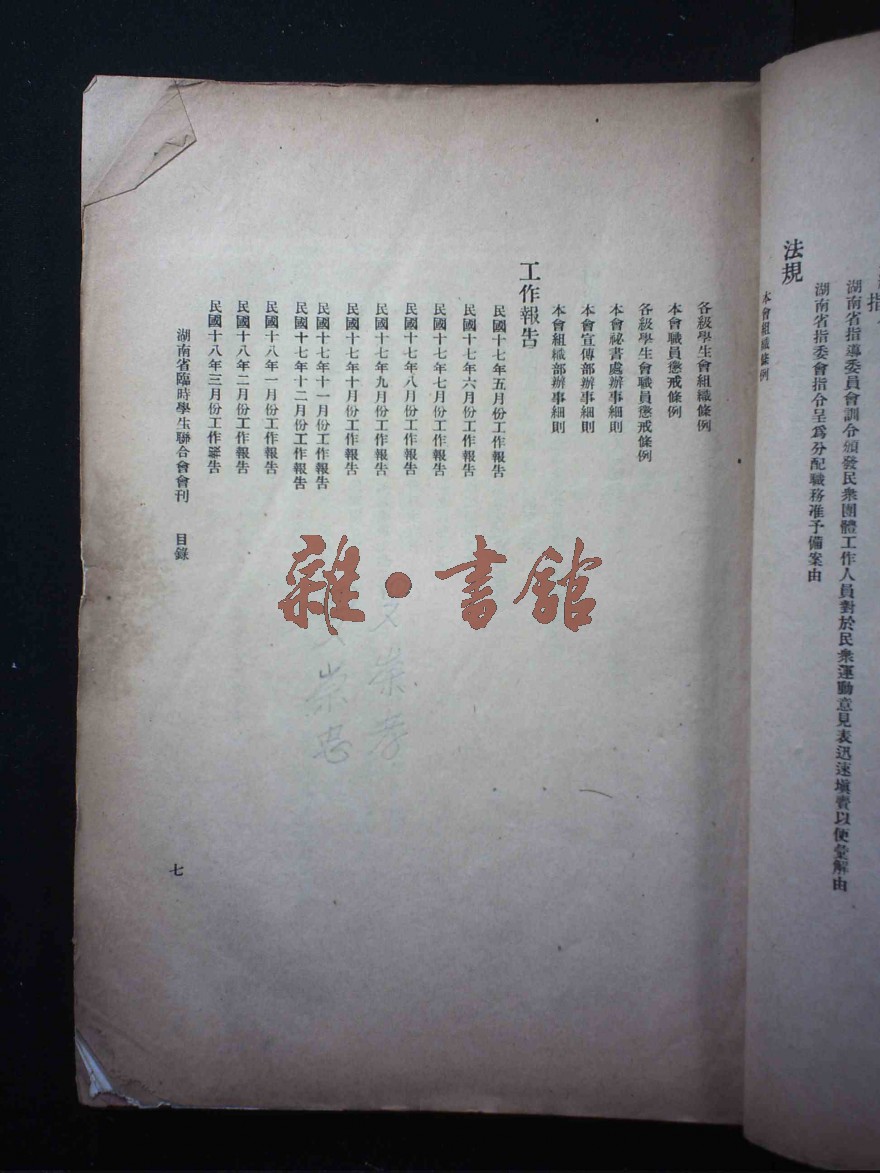 湖南省指導委員會訓令頒發民衆團體工作人員對於民衆運動意見表迅速填賷以便彙解由
湖南省指委會指令呈爲分配職務准予備案由
法規
本會組織條例
各級學生會組織條例
本會職員懲戒條例
各級學生會職員懲戒條例
本會祕書處辦事細則
本會宣傳部辦事細則
本會組織部辦事細則
工作報告
民國十七年五月份工作報告
民國十七年六月份工作報告
民國十七年七月份工作報告
民國十七年八月份工作報告
民國十七年九月份工作報告
民國十七年十月份工作報告
民國十七年十一月份工作報告
民國十七年十二月份工作報告
民國十八年一月份工作報告
民國十八年二月份工作報告
民國十八年三月份工作報告
湖南省臨時學生聯合會會刊 目錄
七
雜•書館